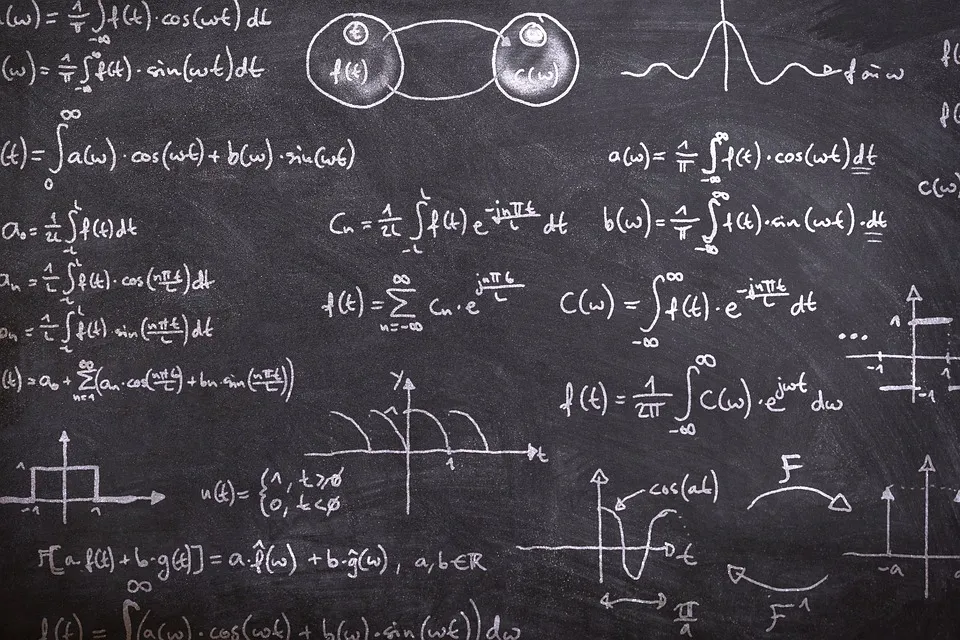 (ω) = 1/π ∫_{-∞} f(t)·cos(ωt) dt
(ω) = 1/π ∫_{-∞}^{∞} f(t)·sin(ωt) dt
t f(t) C(ω)
f ain ω
(t) = ∫_0^∞ a(ω)·cos(ωt) + b(ω)·sin(ωt)
a(ω) = 1/π ∫_{-∞}^{∞} f(t)·cos(ωt) dt
C(ω)
a₀ = 1/2L ∫_{-L}^{L} f(t) dt
Cn = 1/2L ∫_{-L}^{L} f(t) e^{-jnπt/L} dt
b(ω) = 1/π ∫_{-∞}^{∞} f(t)·sin(ωt)·dt
an = 1/L ∫_{-L}^{L} f(t)·cos(nπt/L) dt
f(t) = ∑_{n=-∞}^{∞} Cn·e^{jnπt/L}
C(ω) = ∫_{-∞}^{∞} f(t)·e^{-jnπt/L} dt
n = 1/L ∫_{-L}^{L} f(t)·sin(nπt/L) dt
... 1 -1 1
-1
(t) = a₀ + ∑_{n=1}^{∞} (an·cos(nπt/L) + bn·sin(nπt/L))
f(t) = 1/2π ∫_{-∞}^{∞} C(ω)·e^{jωt} dω
y 1 1 t
1 -1 1
u(t) = {1, t≥0
0, t<0
cos(at) t π/a
F
F⁻¹
-a
F[a·f(t) + b·g(t)] = a·f̂(ω) + b·ĝ(ω), a,b∈ℝ
f(t) = ∫^∞ (a(ω)·cos(ωt) + b(ω)·sin(ωt)) dω